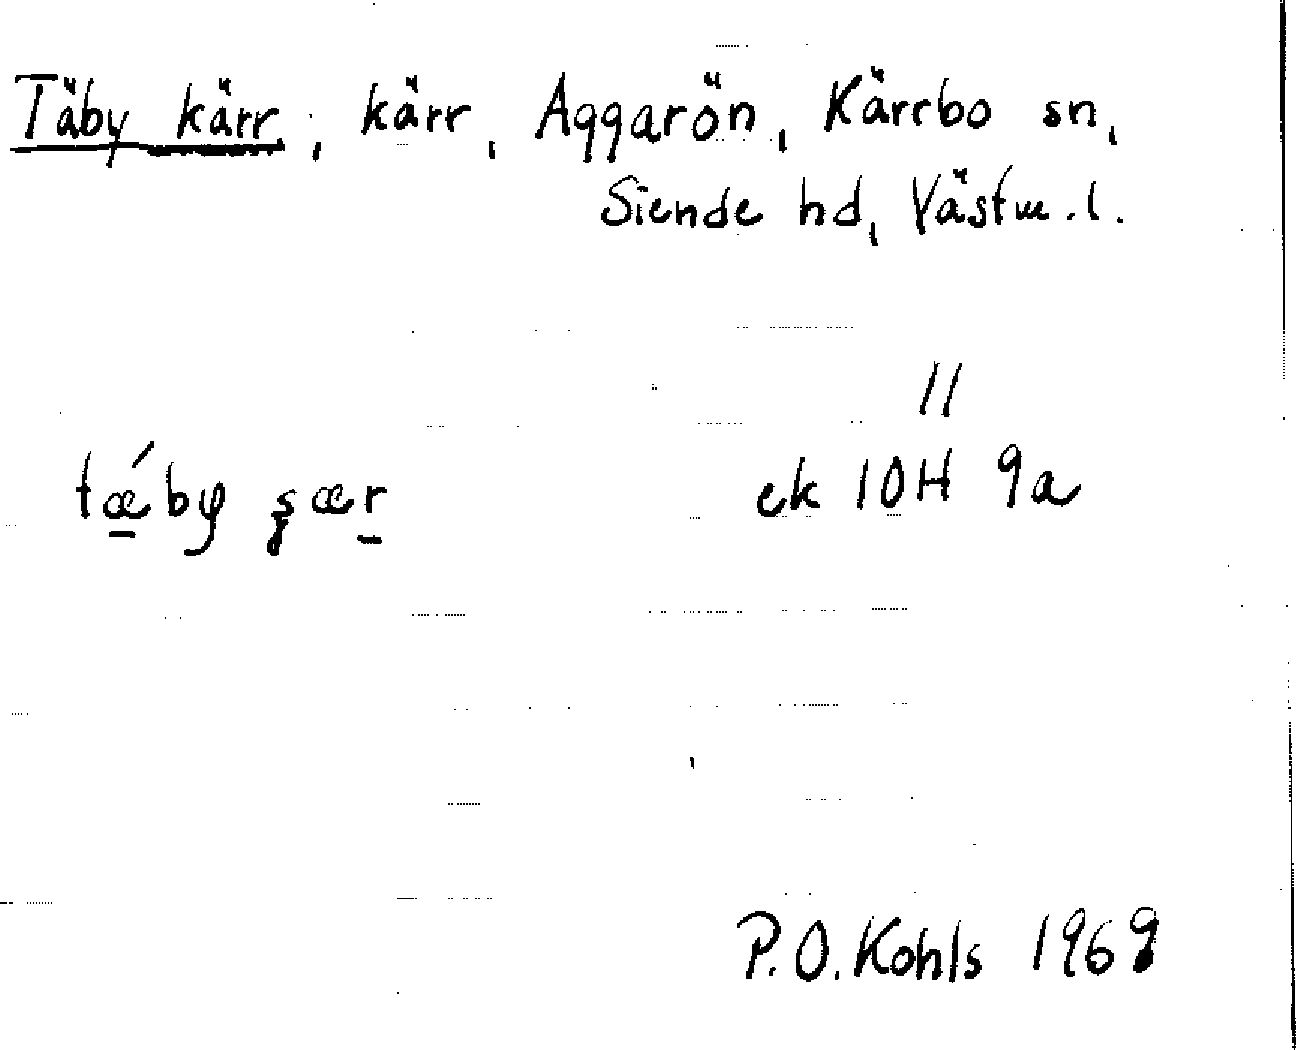 Täby kärr, kärr, Aggarön, Kärrbo sn,
Siende hd, Västm.l.
11
tǽ̱by ʂæṟ
ek 10H 9a
P.O.Kohls 1969